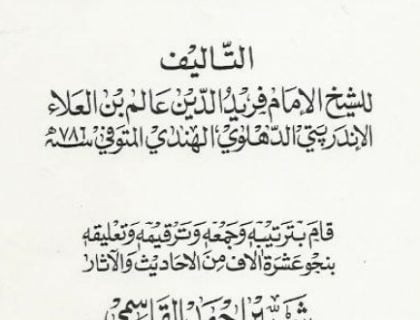 التأليف
للشيخ الإمام فريد الدين عالم بن العلاء
الإندريتي الدهلوي الهندي المتوفى سنة ٧٨٦هـ
قام بترتيبه وجمعه وترقيمه وتعليقه
بنحو عشرة آلاف من الاحاديث والآثار
القاسمي